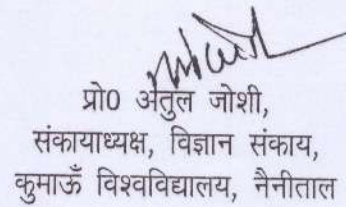 प्रो0 अतुल जोशी,
संकायाध्यक्ष, विज्ञान संकाय,
कुमाऊँ विश्वविद्यालय, नैनीताल